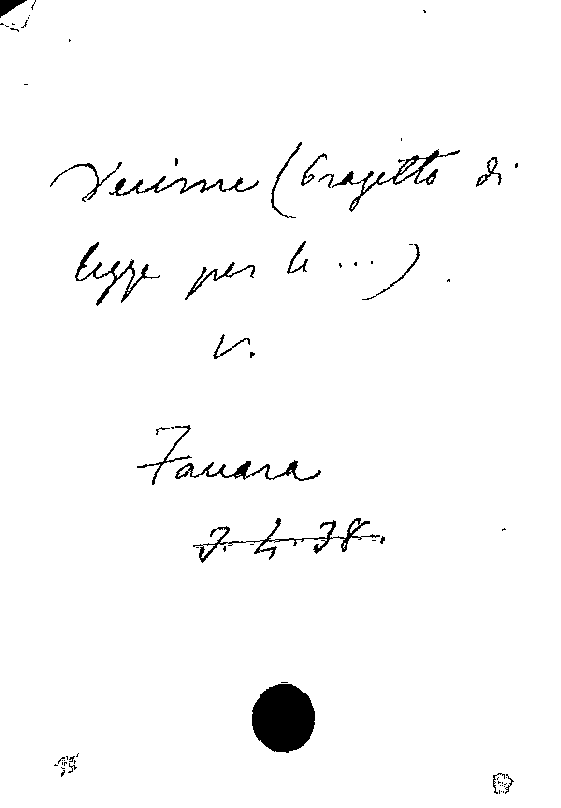 Decime (Progetto di
legge per le ...).
v.
Favara
3. 4. 38.